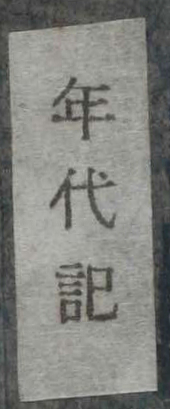 年代記